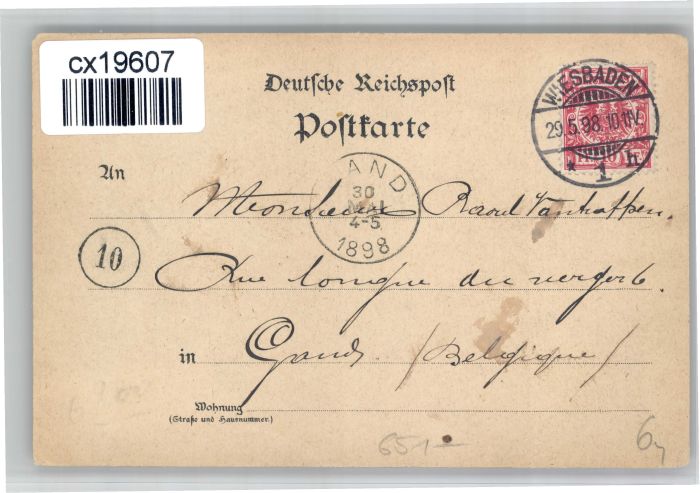 cx19607
Deutsche Reichspost
Postkarte
WIESBADEN
29.5.98.10-11V.
* 1 h
An
Monsieur Raoul Vanhaffen.
GAND
30
MAI
4-5
1898
10
Rue longue du verger 6.
in Gand. (Belgique)
Wohnung
(Straße und Hausnummer.)
651-
6,